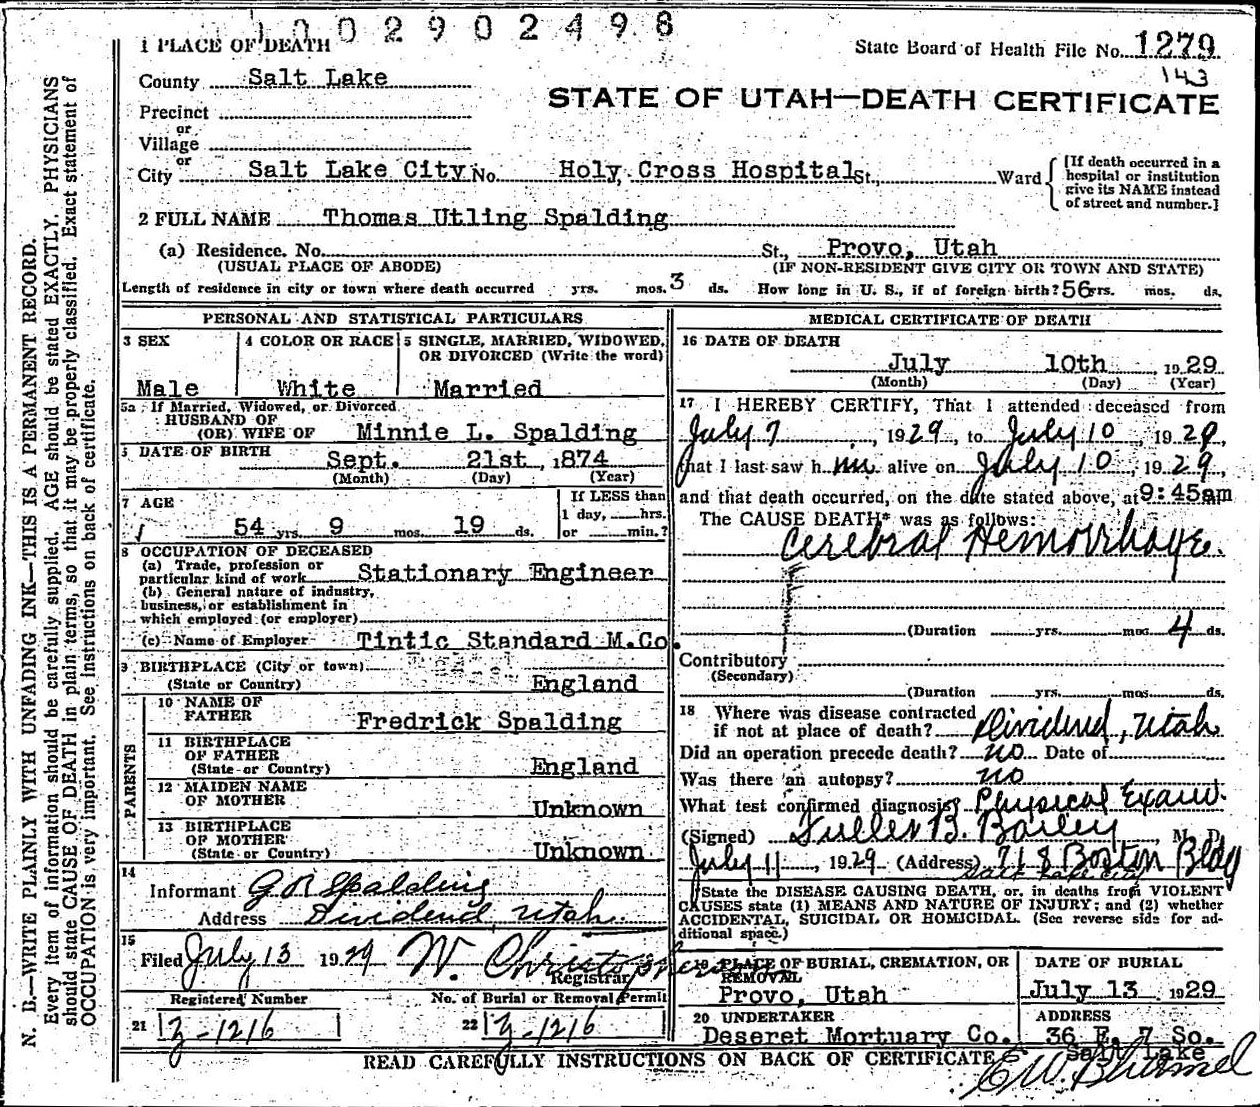 1002902498
1 PLACE OF DEATH
State Board of Health File No. 1279
143
County Salt Lake
STATE OF UTAH—DEATH CERTIFICATE
Precinct
or
Village
or
City Salt Lake City No. Holy Cross Hospital St., Ward
[If death occurred in a hospital or institution give its NAME instead of street and number.]
2 FULL NAME Thomas Utling Spalding
(a) Residence. No. St., Provo, Utah
(USUAL PLACE OF ABODE) (IF NON-RESIDENT GIVE CITY OR TOWN AND STATE)
Length of residence in city or town where death occurred yrs. mos. 3 ds. How long in U. S., if of foreign birth? 56 yrs. mos. ds.
PERSONAL AND STATISTICAL PARTICULARS
3 SEX
Male
4 COLOR OR RACE
White
5 SINGLE, MARRIED, WIDOWED,
OR DIVORCED (Write the word)
Married
5a If Married, Widowed, or Divorced
HUSBAND OF
(OR) WIFE OF Minnie L. Spalding
DATE OF BIRTH
Sept. 21st, 1874
(Month) (Day) (Year)
7 AGE
54 yrs. 9 mos. 19 ds.
If LESS than
1 day, hrs.
or min.?
8 OCCUPATION OF DECEASED
(a) Trade, profession or
particular kind of work Stationary Engineer
(b) General nature of industry,
business, or establishment in
which employed (or employer)
(c) Name of Employer Tintic Standard M.Co.
9 BIRTHPLACE (City or town)
(State or Country) England
PARENTS
10 NAME OF
FATHER Fredrick Spalding
11 BIRTHPLACE
OF FATHER
(State or Country) England
12 MAIDEN NAME
OF MOTHER Unknown
13 BIRTHPLACE
OF MOTHER
(State or Country) Unknown
14
Informant G R Spalding
Address Dividend Utah
15
Filed July 13 1929 W. Christopherson
Registrar
Registered Number
21 Z-1216
No. of Burial or Removal Permit
22 Z-1216
MEDICAL CERTIFICATE OF DEATH
16 DATE OF DEATH
July 10th 1929
(Month) (Day) (Year)
17 I HEREBY CERTIFY, That I attended deceased from
July 7, 1929, to July 10, 1929
that I last saw h im alive on July 10, 1929
and that death occurred, on the date stated above, at 9:45am
The CAUSE DEATH* was as follows:
Cerebral Hemorrhage.
(Duration yrs. mos. 4 ds.
Contributory
(Secondary)
(Duration yrs. mos. ds.
18 Where was disease contracted
if not at place of death? Dividend, Utah
Did an operation precede death? no Date of
Was there an autopsy? no
What test confirmed diagnosis? Physical Exam.
(Signed) Fuller B. Bailey M. D.
July 11, 1929 (Address) 718 Boston Bldg
Salt Lake City
*State the DISEASE CAUSING DEATH, or, in deaths from VIOLENT
CAUSES state (1) MEANS AND NATURE OF INJURY; and (2) whether
ACCIDENTAL, SUICIDAL OR HOMICIDAL. (See reverse side for ad-
ditional space.)
19 PLACE OF BURIAL, CREMATION, OR
REMOVAL
Provo, Utah
DATE OF BURIAL
July 13 1929
20 UNDERTAKER
Deseret Mortuary Co.
ADDRESS
36 E. 7 So.
Salt Lake
READ CAREFULLY INSTRUCTIONS ON BACK OF CERTIFICATE
N. B.—WRITE PLAINLY WITH UNFADING INK—THIS IS A PERMANENT RECORD.
Every item of information should be carefully supplied. AGE should be stated EXACTLY. PHYSICIANS
should state CAUSE OF DEATH in plain terms, so that it may be properly classified. Exact statement of
OCCUPATION is very important. See instructions on back of certificate.